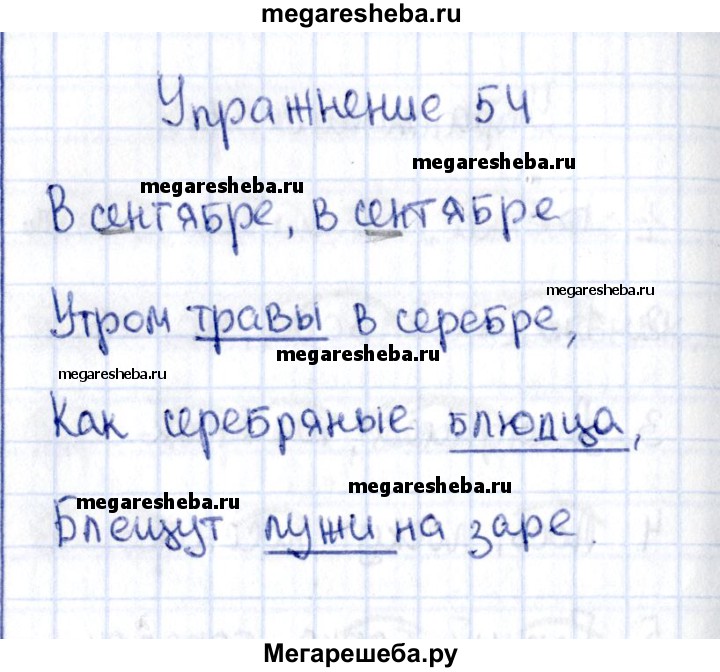 megaresheba.ru
Упражнение 54
megaresheba.ru
megaresheba.ru
В сентябре, в сентябре
megaresheba.ru
Утром травы в серебре,
megaresheba.ru
megaresheba.ru
Как серебряные блюдца,
megaresheba.ru
megaresheba.ru
Блещут лужи на заре.
Мегарешеба.ру